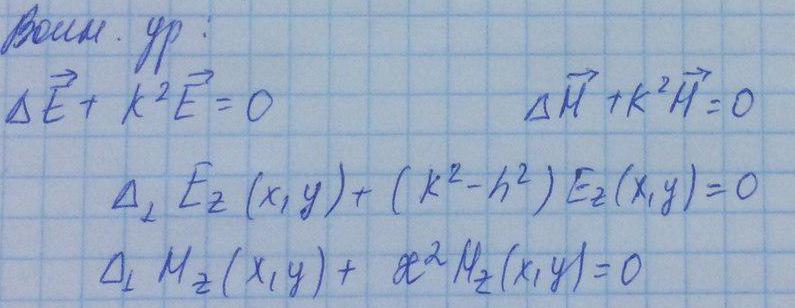 Волн. ур:
ΔE⃗ + k²E⃗ = 0 ΔH⃗ + k²H⃗ = 0
Δ⊥ E_z (x, y) + (k² - h²) E_z (x, y) = 0
Δ⊥ H_z (x, y) + æ² H_z (x, y) = 0